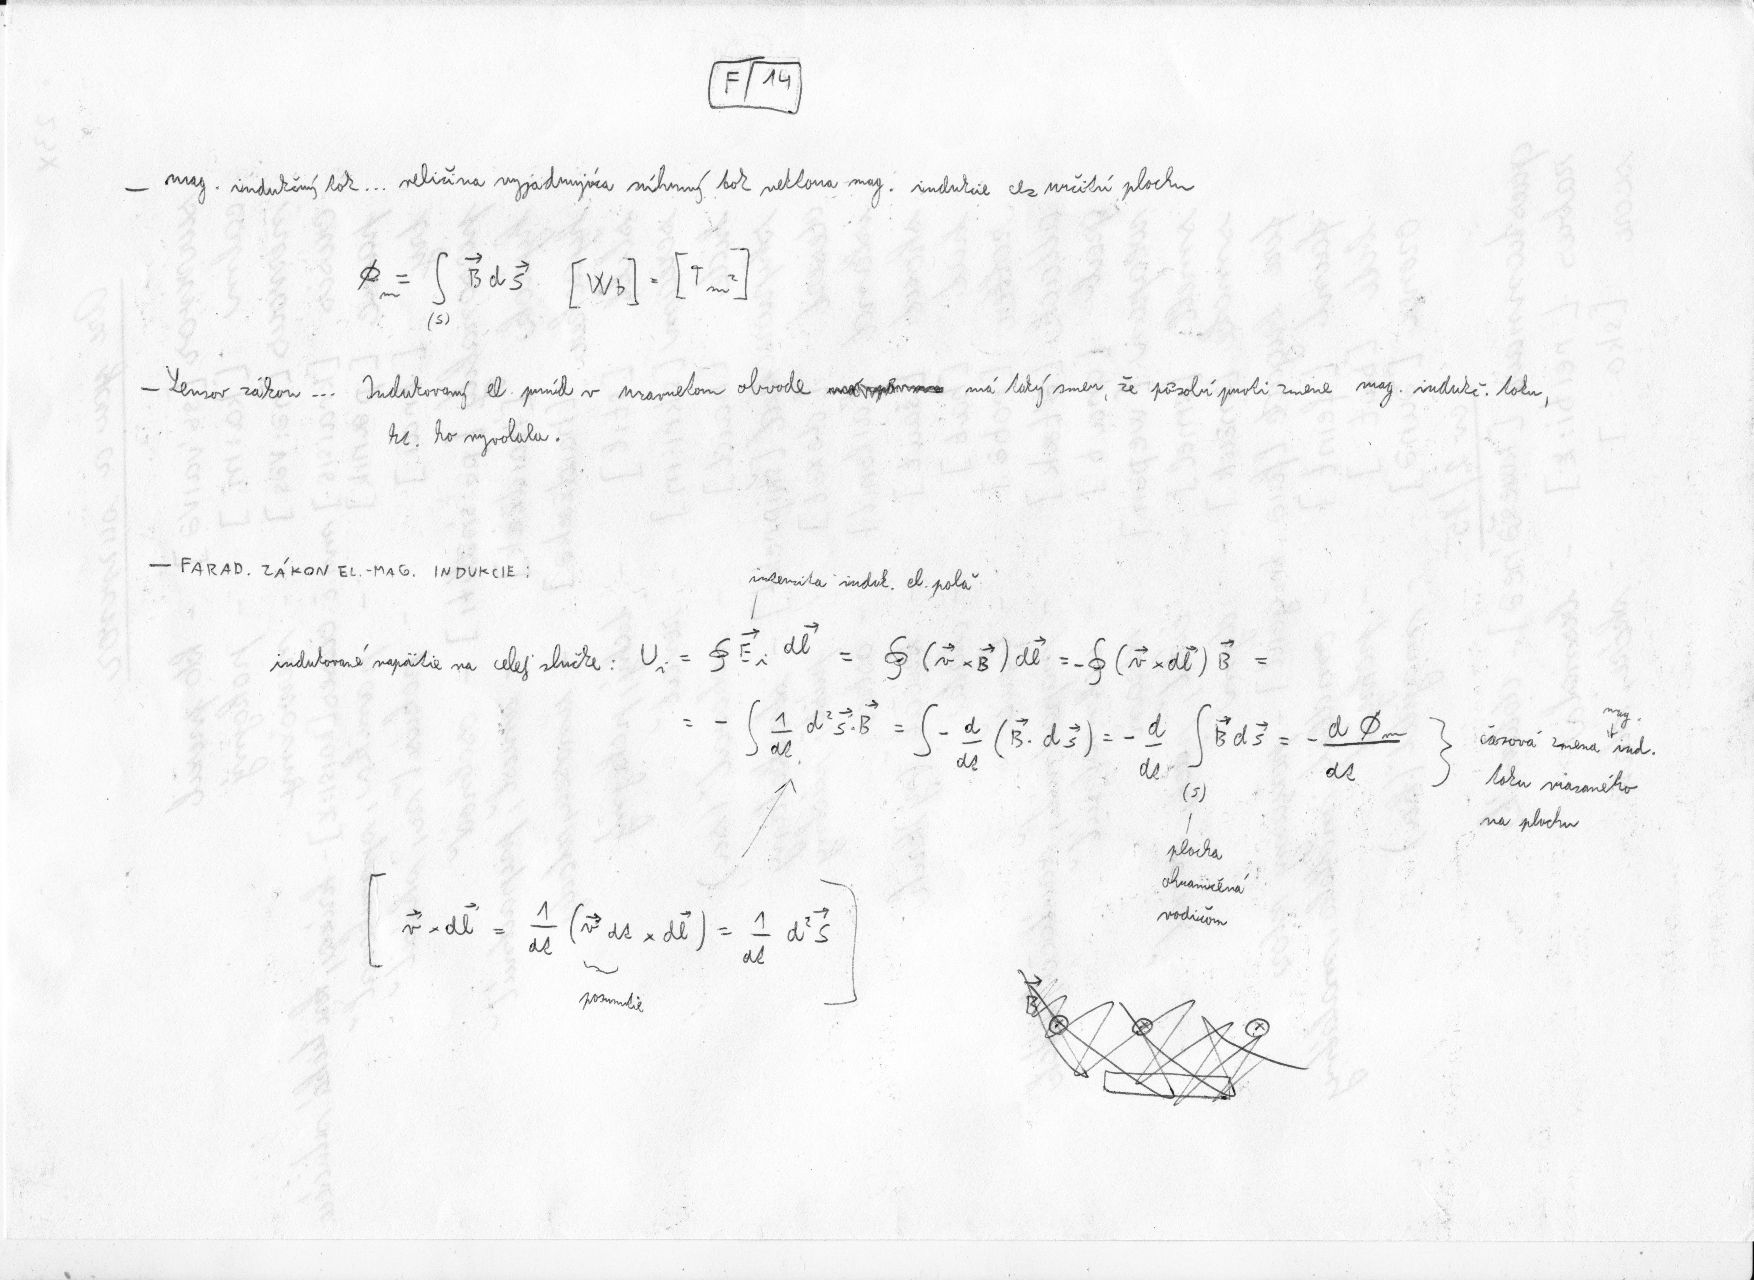 F/14
— mag. indukčný tok ... veličina vyjadrujúca súhrnný tok vektora mag. indukcie cez určitú plochu
Φm = ∫(S) B⃗ dS⃗ [Wb] = [T m²]
— Lenzov zákon ... Indukovaný el. prúd v uzavretom obvode má taký smer, že pôsobí proti zmene mag. indukč. toku,
kt. ho vyvolala.
— FARAD. ZÁKON EL.-MAG. INDUKCIE:
intenzita induk. el. poľa
indukované napätie na celej slučke: Uᵢ = ∮ E⃗ᵢ dl⃗ = ∮ (v⃗ × B⃗) dl⃗ = -∮ (v⃗ × dl⃗) B⃗ =
= - ∫ 1/dt d²S⃗·B⃗ = ∫ - d/dt (B⃗ · dS⃗) = - d/dt ∫(S) B⃗ dS⃗ = - dΦm/dt } časová zmena mag. ind.
toku viazaného
na plochu
plocha
ohraničená
vodičom
[ v⃗ × dl⃗ = 1/dt (v⃗ dt × dl⃗) = 1/dt d²S⃗ ]
posunutie
B⃗